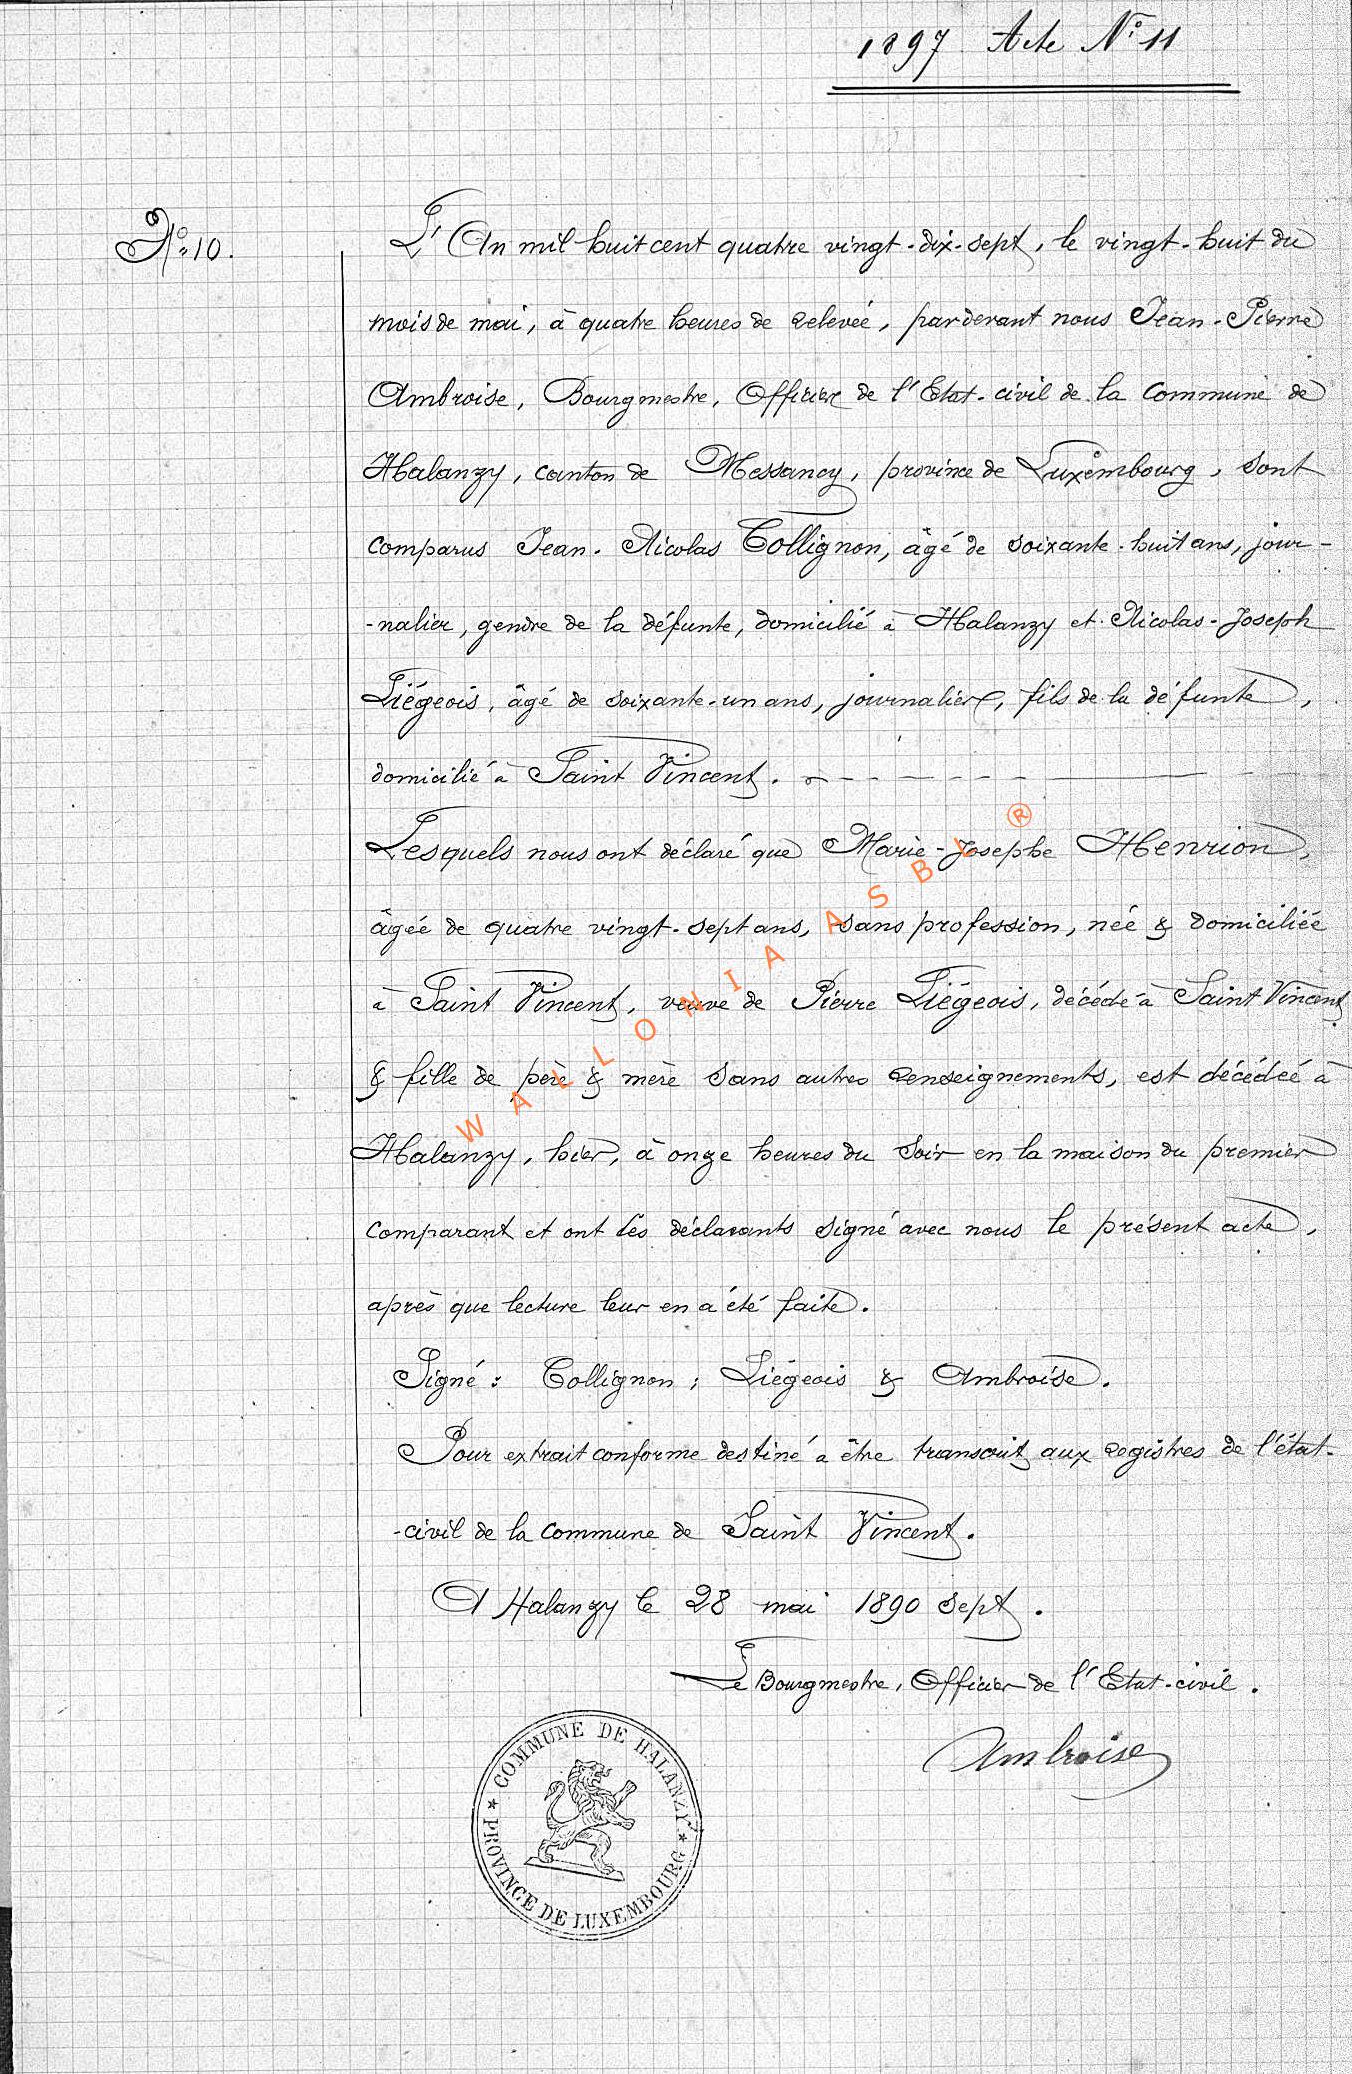 1897 Acte N° 11
N° 10.
L'An mil huit cent quatre vingt-dix-sept, le vingt-huit du
mois de mai, à quatre heures de relevée, pardevant nous Jean-Pierre
Ambroise, Bourgmestre, Officier de l'Etat-civil de la Commune de
Halanzy, canton de Messancy, province de Luxembourg, sont
comparus Jean-Nicolas Collignon, âgé de soixante-huit ans, jour-
-nalier, gendre de la défunte, domicilié à Halanzy et Nicolas-Joseph
Liégeois, âgé de soixante-un ans, journalier, fils de la défunte,
domicilié à Saint Vincent.
Lesquels nous ont déclaré que Marie-Josephe Henrion,
âgée de quatre vingt-sept ans, sans profession, née & domiciliée
à Saint Vincent, veuve de Pierre Liégeois, décédé à Saint Vincent
& fille de père & mère sans autres renseignements, est décédée à
Halanzy, hier, à onze heures du soir en la maison du premier
comparant et ont les déclarants signé avec nous le présent acte,
après que lecture leur en a été faite.
Signé : Collignon ; Liégeois & Ambroise.
Pour extrait conforme destiné à être transcrit aux registres de l'état-
-civil de la commune de Saint Vincent.
A Halanzy le 28 mai 1890 sept.
Le Bourgmestre, Officier de l'Etat-civil.
Ambroise
COMMUNE DE HALANZY
PROVINCE DE LUXEMBOURG
WALLONIA ASBL ®